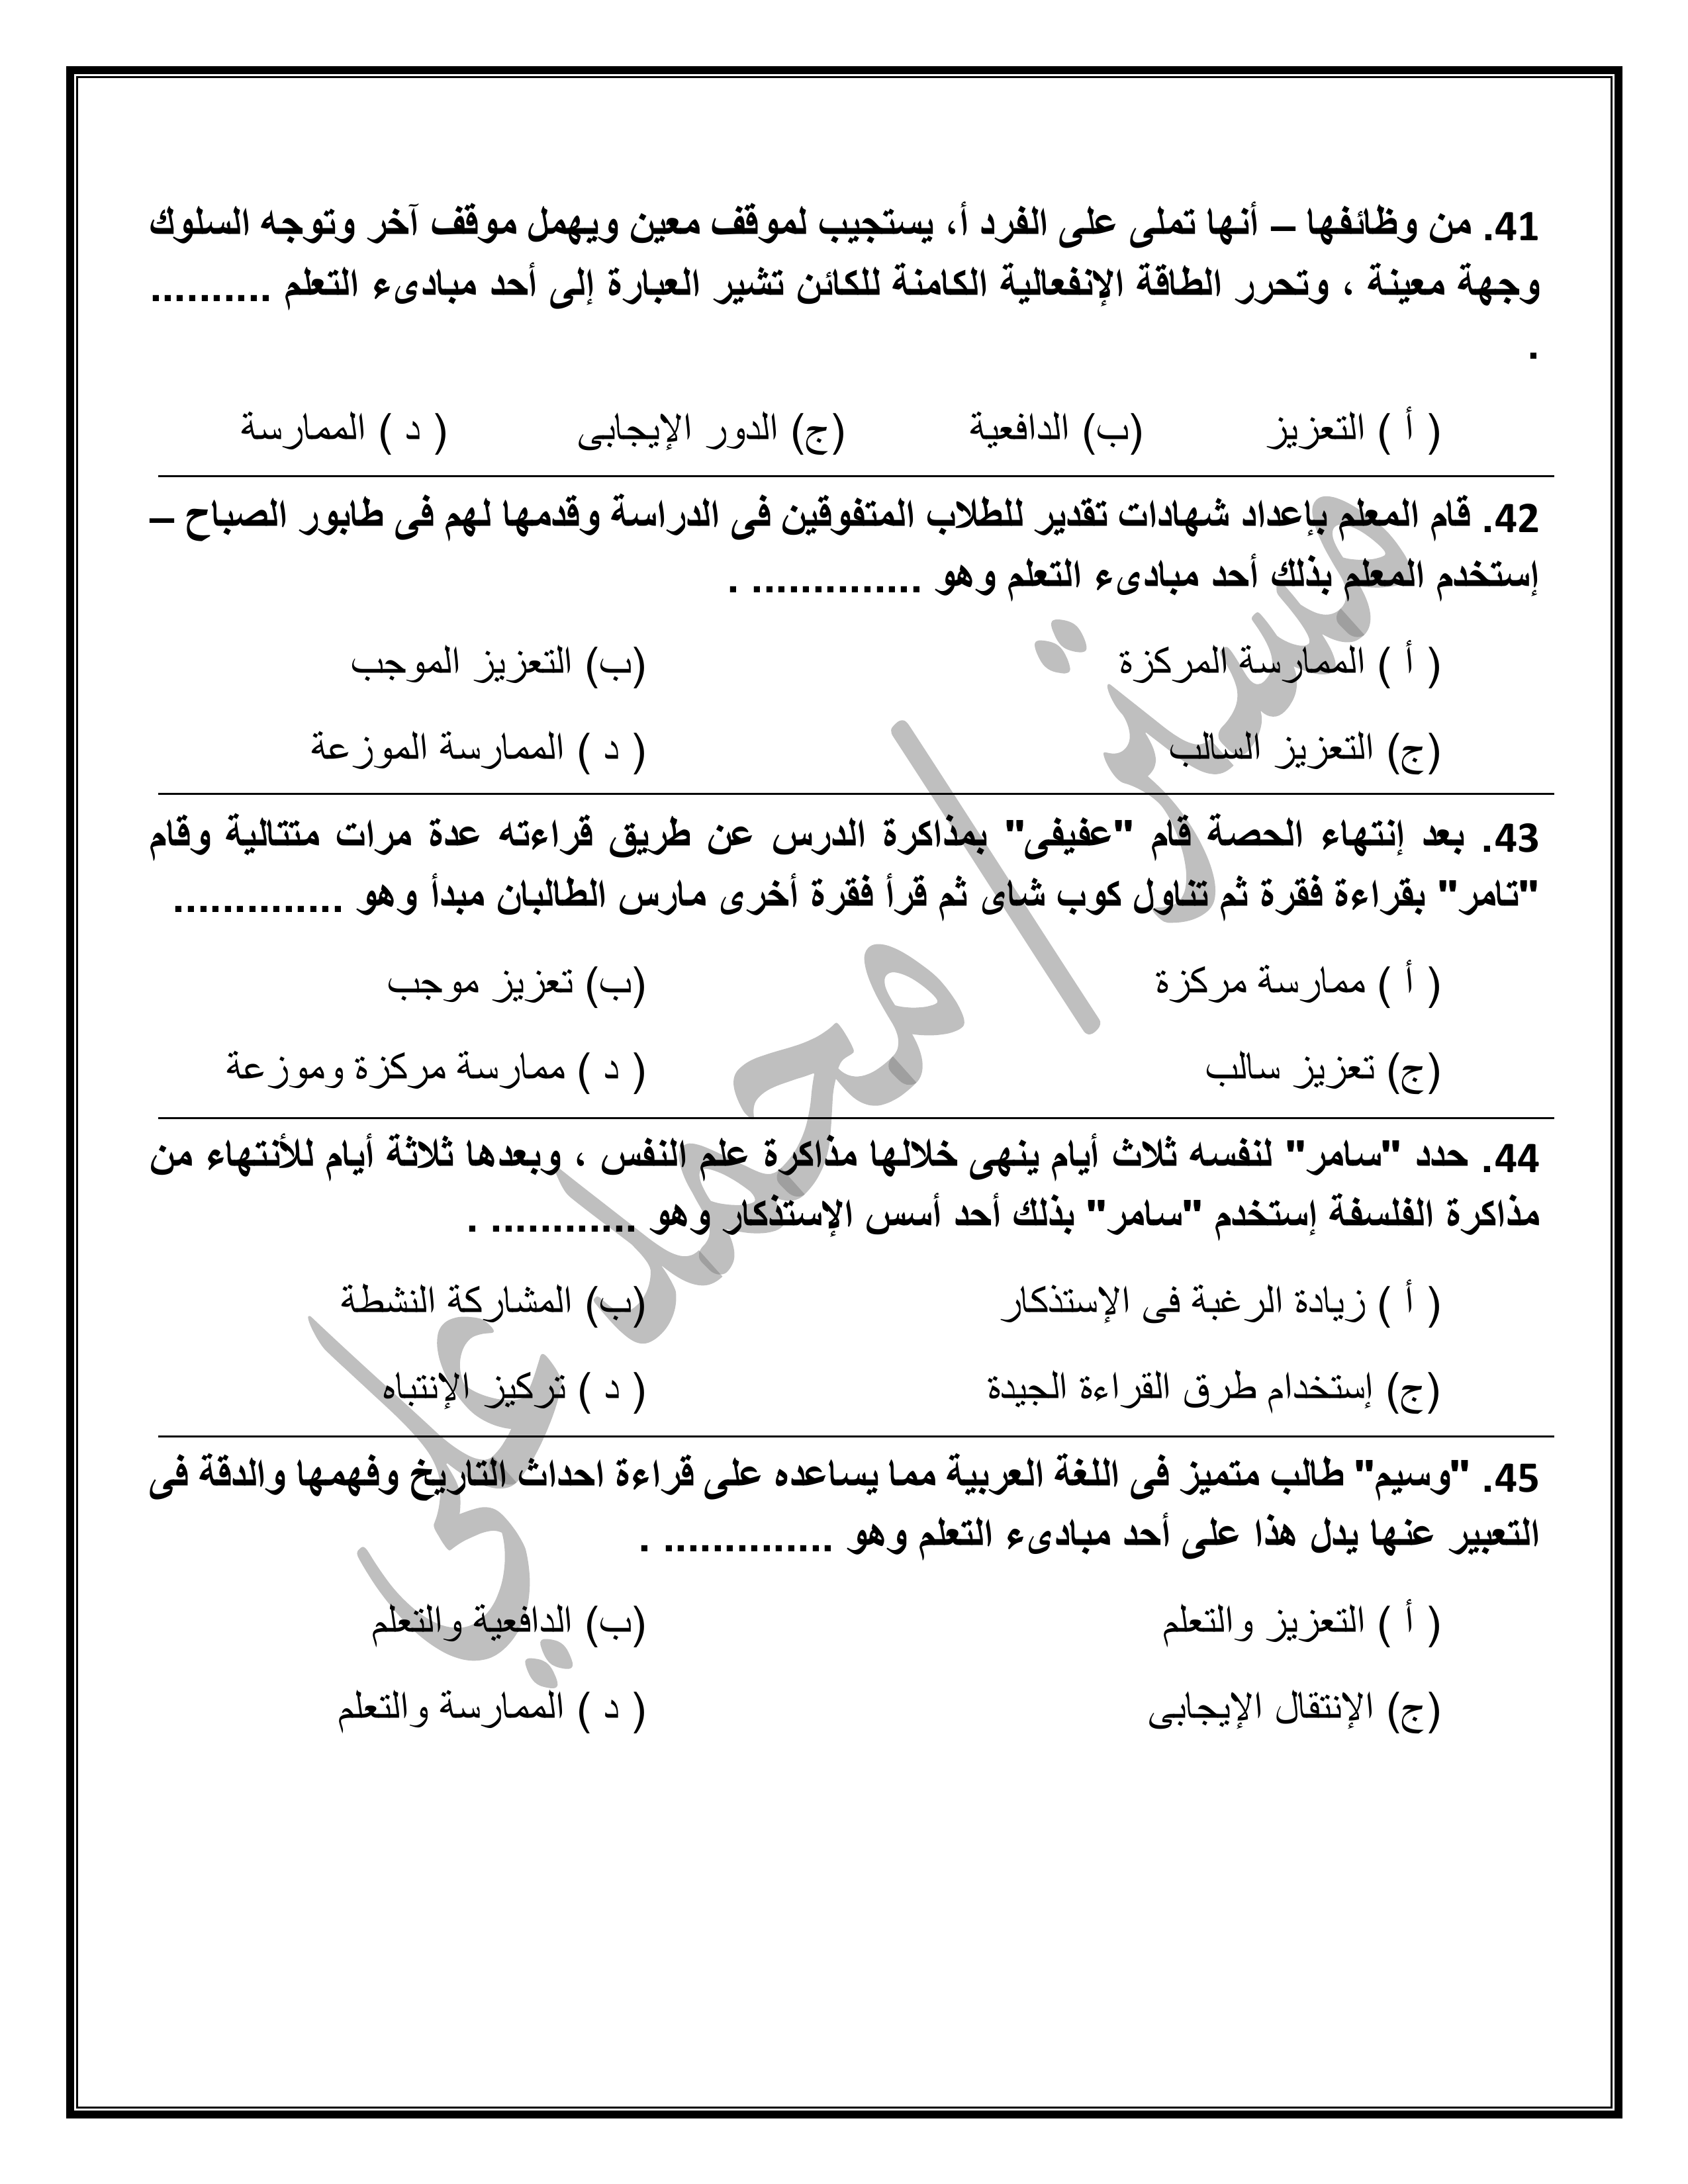 41. من وظائفها – أنها تملى على الفرد أ، يستجيب لموقف معين ويهمل موقف آخر وتوجه السلوك
وجهة معينة ، وتحرر الطاقة الإنفعالية الكامنة للكائن تشير العبارة إلى أحد مبادىء التعلم ..........
.
( أ ) التعزيز (ب) الدافعية (ج) الدور الإيجابى ( د ) الممارسة
42. قام المعلم بإعداد شهادات تقدير للطلاب المتفوقين فى الدراسة وقدمها لهم فى طابور الصباح –
إستخدم المعلم بذلك أحد مبادىء التعلم وهو .............. .
( أ ) الممارسة المركزة (ب) التعزيز الموجب
(ج) التعزيز السالب ( د ) الممارسة الموزعة
43. بعد إنتهاء الحصة قام "عفيفى" بمذاكرة الدرس عن طريق قراءته عدة مرات متتالية وقام
"تامر" بقراءة فقرة ثم تناول كوب شاى ثم قرأ فقرة أخرى مارس الطالبان مبدأ وهو ..............
( أ ) ممارسة مركزة (ب) تعزيز موجب
(ج) تعزيز سالب ( د ) ممارسة مركزة وموزعة
44. حدد "سامر" لنفسه ثلاث أيام ينهى خلالها مذاكرة علم النفس ، وبعدها ثلاثة أيام للأنتهاء من
مذاكرة الفلسفة إستخدم "سامر" بذلك أحد أسس الإستذكار وهو ............ .
( أ ) زيادة الرغبة فى الإستذكار (ب) المشاركة النشطة
(ج) إستخدام طرق القراءة الجيدة ( د ) تركيز الإنتباه
45. "وسيم" طالب متميز فى اللغة العربية مما يساعده على قراءة احداث التاريخ وفهمها والدقة فى
التعبير عنها يدل هذا على أحد مبادىء التعلم وهو .............. .
( أ ) التعزيز والتعلم (ب) الدافعية والتعلم
(ج) الإنتقال الإيجابى ( د ) الممارسة والتعلم
مستر/محمد علي